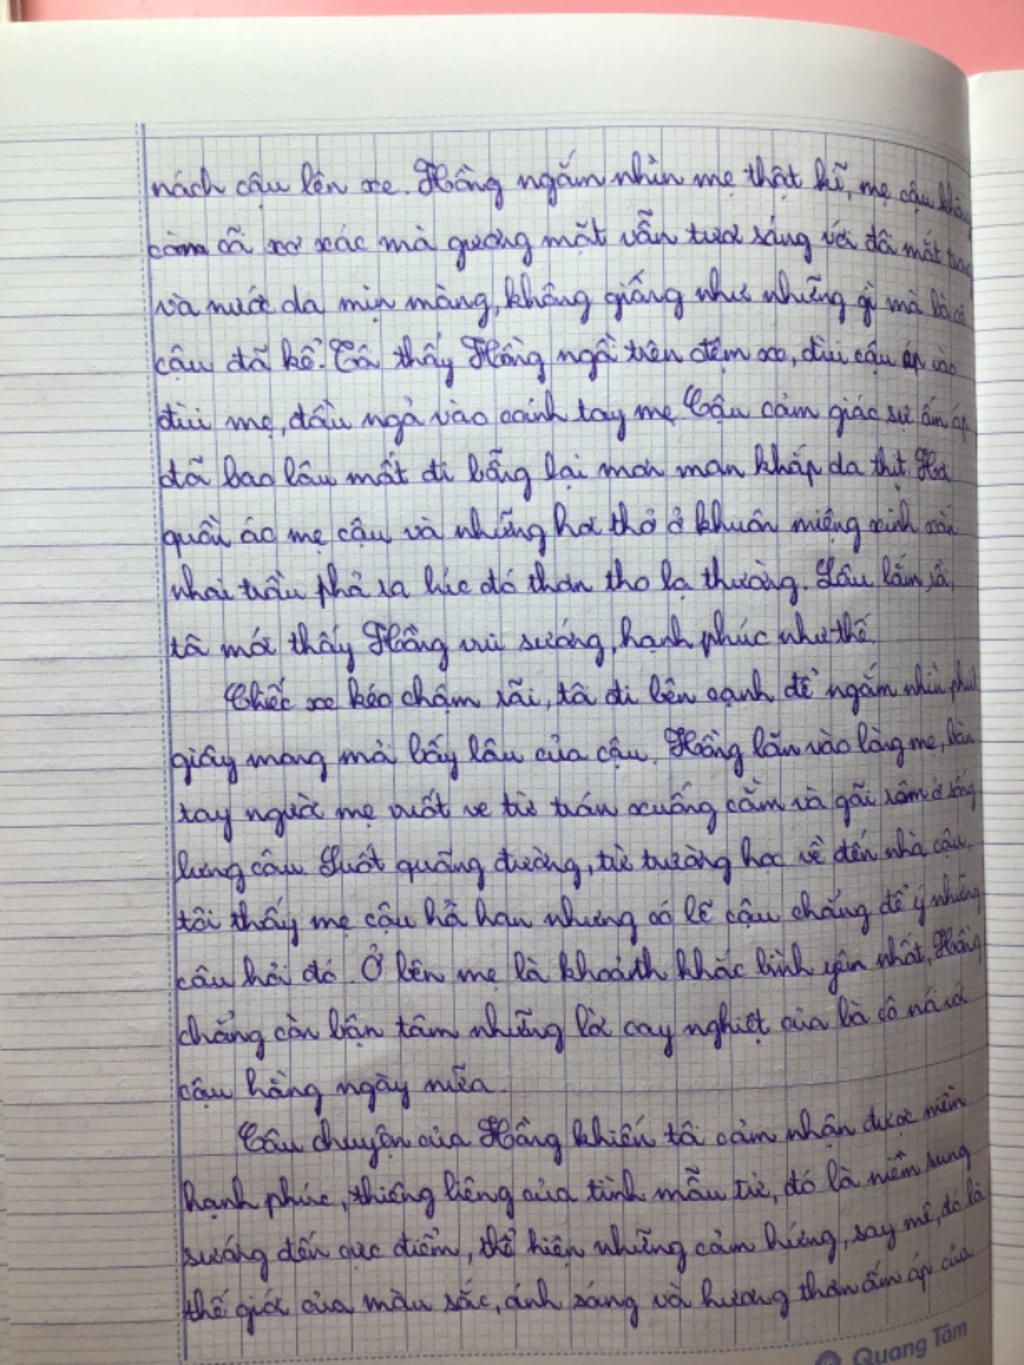 nách cậu lên xe. Hồng ngắm nhìn mẹ thật kĩ, mẹ cậu không
còm cõi xơ xác mà gương mặt vẫn tươi sáng với đôi mắt trong
và nước da mịn màng, không giống như những gì mà bà cô
cậu đã kể. Tôi thấy Hồng ngồi trên đệm xe, đùi cậu áp vào
đùi mẹ, đầu ngả vào cánh tay mẹ Cậu cảm giác sự ấm áp
đã bao lâu mất đi bỗng lại mơn man khắp da thịt. Hơi
quần áo mẹ cậu và những hơi thở ở khuôn miệng xinh xắn
nhai trầu phả ra lúc đó thơm tho lạ thường. Lâu lắm rồi,
tôi mới thấy Hồng vui sướng, hạnh phúc như thế.
Chiếc xe kéo chậm rãi, tôi đi bên cạnh để ngắm nhìn phút
giây mong mỏi bấy lâu của cậu. Hồng lăn vào lòng mẹ, bàn
tay người mẹ vuốt ve từ trán xuống cằm và gãi rôm ở sống
lưng cậu Suốt quãng đường, từ trường học về đến nhà cậu,
tôi thấy mẹ cậu hỏi han nhưng có lẽ cậu chẳng để ý những
câu hỏi đó. Ở bên mẹ là khoảnh khắc bình yên nhất, Hồng
chẳng còn bận tâm những lời cay nghiệt của bà cô nói với
cậu hằng ngày nữa.
Câu chuyện của Hồng khiến tôi cảm nhận được niềm
hạnh phúc, thiêng liêng của tình mẫu tử, đó là niềm sung
sướng đến cực điểm, thể hiện những cảm hứng, say mê, đó là
thế giới của màu sắc, ánh sáng và hương thơm ấm áp của
Quang Tâm